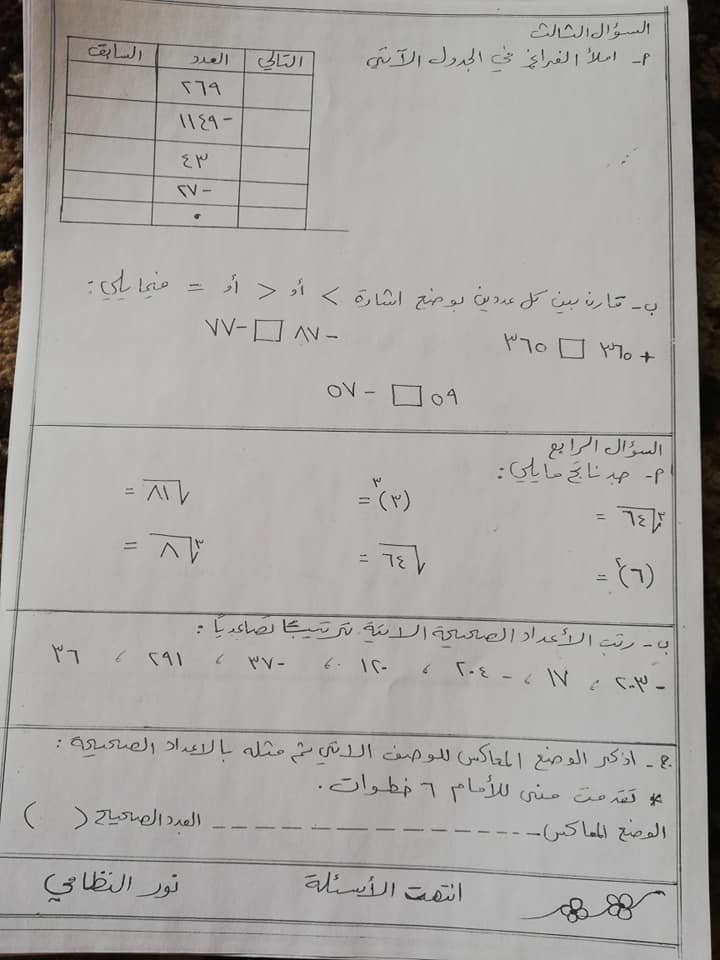 السؤال الثالث
٩- املأ الفراغ في الجدول الآتي
التالي العدد السابق
٢٦٩
١١٤٩-
٤٣
٢٧-
٠
ب- قارن بين كل عددين بوضع اشارة < أو > أو = فيما يلي:
+٣٦٠ □ ٣٦٥
-٨٧ □ -٧٧
٥٩ □ -٥٧
السؤال الرابع
٩- جد ناتج ما يلي:
∛٦٤ = (٣)³ = √٨١ =
(٦)² = √٦٤ = ∛٨ =
ب- رتب الأعداد الصحيحة الاتية ترتيبًا تصاعديًا:
-٢٠٣ ، ١٧ ، -٢٠٤ ، ١٢٠ ، -٣٧٠ ، ٢٩١ ، ٣٦
ج- اذكر الوضع المعاكس للوصف الاتي ثم مثله بالاعداد الصحيحة:
* تقدمت منى للأمام ٦ خطوات.
الوضع المعاكس ــــــــــــــ العدد الصحيح ( )
انتهت الأسئلة نور النظامي